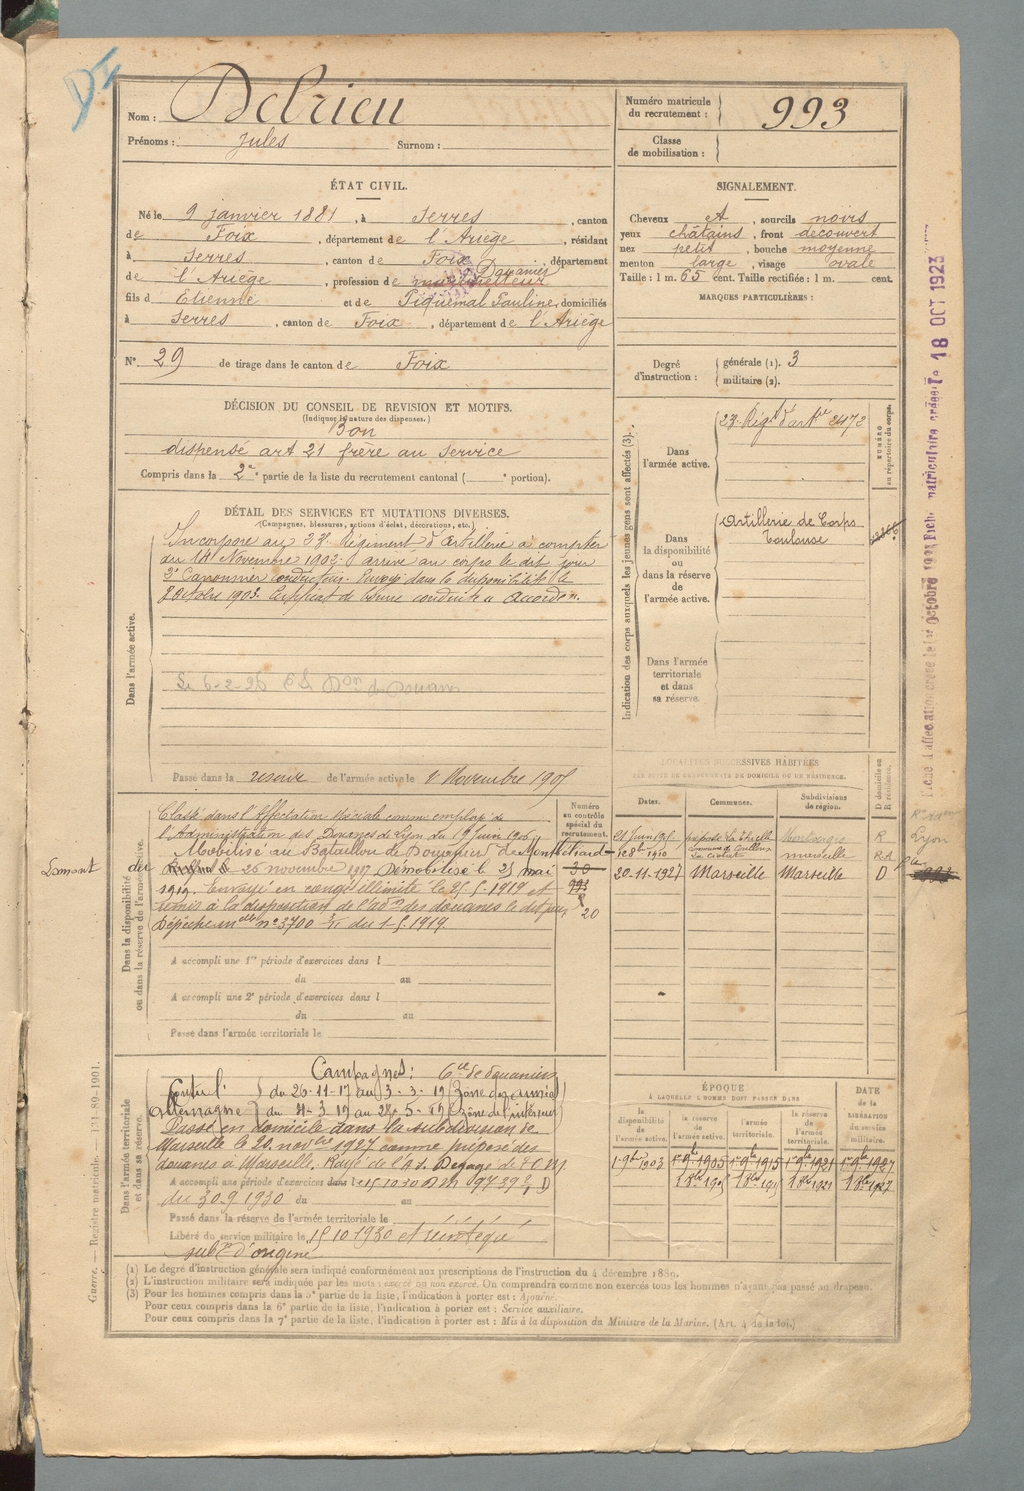 DI
Nom : Delrieu
Prénoms : Jules Surnom :
Numéro matricule du recrutement : 993
Classe de mobilisation :
ÉTAT CIVIL.
Né le 9 janvier 1881, à Serres, canton
de Foix, département de l'Ariège, résidant
à Serres, canton de Foix, département
de l'Ariège, profession de Douanier
fils d'Etienne et de Piquemal Pauline, domiciliés
à Serres, canton de Foix, département de l'Ariège
N° 29 de tirage dans le canton de Foix
SIGNALEMENT.
Cheveux sourcils noirs
yeux châtains, front découvert
nez petit, bouche moyenne
menton large, visage ovale
Taille : 1 m. 65 cent. Taille rectifiée : 1 m. cent.
MARQUES PARTICULIÈRES :
Degré d'instruction : générale (1). 3
militaire (2).
DÉCISION DU CONSEIL DE REVISION ET MOTIFS.
(Indiquer la nature des dispenses.)
Bon
dispensé art 21 frère au service
Compris dans la 2e partie de la liste du recrutement cantonal ( e portion).
DÉTAIL DES SERVICES ET MUTATIONS DIVERSES.
(Campagnes, blessures, actions d'éclat, décorations, etc.)
Dans l'armée active.
Incorporé au 23e Régiment d'artillerie à compter
du 14 Novembre 1902 arrivé au corps le dit jour
2e Canonnier Conducteur. Envoyé dans la disponibilité le
Octobre 1903. Certificat de bonne conduite accordé.
Le 6-2-26
Passé dans la réserve de l'armée active le 1 Novembre 1905
Indication des corps auxquels les jeunes gens sont affectés (3).
Dans l'armée active.
23e Régt d'artie 2472
NUMÉRO au répertoire du corps.
Dans la disponibilité ou dans la réserve de l'armée active.
Artillerie de Corps
Toulouse
Dans l'armée territoriale et dans sa réserve.
18 OCT 1923
Dans la disponibilité ou dans la réserve de l'armée active.
Classé dans l'Affectation spéciale comme employé de
l'Administration des Douanes de Lyon du 19 juin 1906
Mobilisé au Bataillon de Douaniers de Montbéliard
Lomont du
26 novembre 1917 Démobilisé le 25 mai
1919. Envoyé en congé illimité le 25.5.1919 et
remis à la disposition de l'adon des douanes le dit jour
Dépêche melle n° 3700 du 1.5.1919.
Numéro au contrôle spécial du recrutement.
30
993
20
A accompli une 1re période d'exercices dans l
du au
A accompli une 2e période d'exercices dans l
du au
Passé dans l'armée territoriale le
LOCALITÉS SUCCESSIVES HABITÉES
PAR SUITE DE CHANGEMENTS DE DOMICILE OU DE RÉSIDENCE.
Dates. Communes. Subdivisions de région. D domicile ou R résidence.
R
marseille RA
20-11-1927 Marseille Marseille D
Lyon
Dans l'armée territoriale et dans sa réserve
Campagnes : Cie de douaniers
Contre l' du 26-11-17 au 3-3-19 (Zône des armées)
Allemagne du 4-3-19 au 24-5-19 (Zône de l'intérieur)
Passé en domicile dans la subdivision de
Marseille le 20 novbre 1927 comme préposé des
douanes à Marseille. Rayé de l'A.S. Dégagé de
A accompli une période d'exercices dans l 15 10 30 DM 9739
du 30.9.1930 du au
Passé dans la réserve de l'armée territoriale le
Libéré du service militaire le 15 10 1930 et réintégré
subon d'origine
ÉPOQUE
À LAQUELLE L'HOMME DOIT PASSER DANS
la disponibilité de l'armée active. la réserve de l'armée active. l'armée territoriale. la réserve de l'armée territoriale. DATE de la LIBÉRATION du service militaire.
1 9bre 1903 1 9bre 1905 1 9bre 1915 1 9bre 1921 1 9bre 1927
(1) Le degré d'instruction générale sera indiqué conformément aux prescriptions de l'instruction du 4 décembre 1889.
(2) L'instruction militaire sera indiquée par les mots : exercé ou non exercé. On comprendra comme non exercés tous les hommes n'ayant pas passé au drapeau.
(3) Pour les hommes compris dans la 3e partie de la liste, l'indication à porter est : Ajourné.
Pour ceux compris dans la 6e partie de la liste, l'indication à porter est : Service auxiliaire.
Pour ceux compris dans la 7e partie de la liste, l'indication à porter est : Mis à la disposition du Ministre de la Marine. (Art. 4 de la loi.)
Guerre. — Registre matricule. — 131-89-1901.